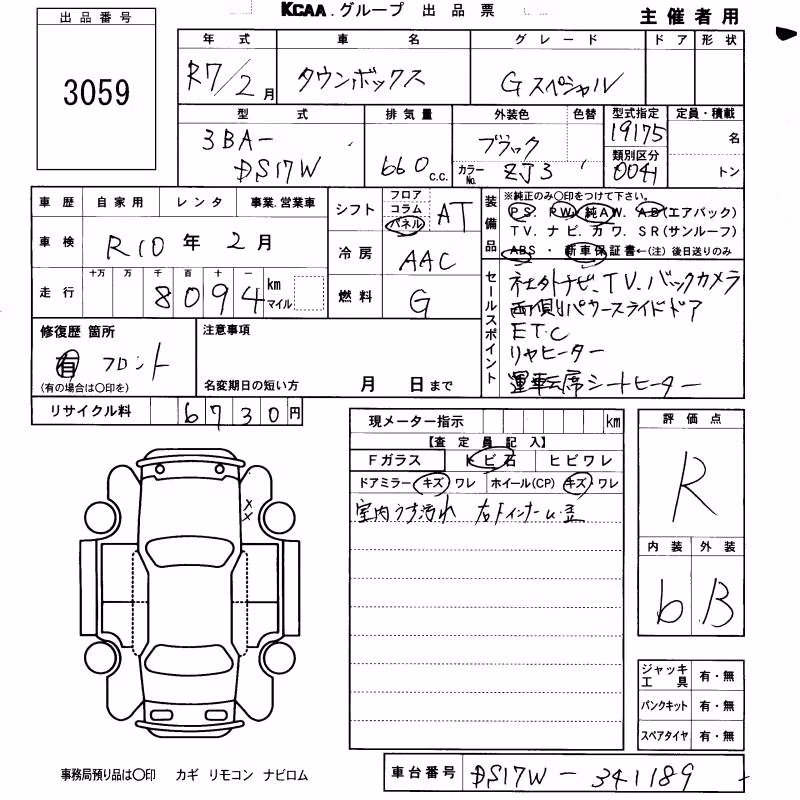 KCAA.グループ 出品票
主催者用
出品番号
3059
年式 車名 グレード ドア 形状
R7/2月 タウンボックス Gスペシャル
型式 排気量 外装色 色替 型式指定 定員・積載
3BA- DS17W 660c.c. ブラック カラーNo. ZJ3 19175 名
類別区分 0041 トン
車歴 自家用 レンタ 事業.営業車
シフト フロア コラム パネル AT
車検 R10年2月
冷房 AAC
走行 十万 万 千 百 十 一 km マイル
8094
燃料 G
装備品 ※純正のみ〇印をつけて下さい。
PS. PW. 純AW. AB(エアバック)
TV. ナビ. カワ. SR(サンルーフ)
ABS・新車保証書←(注)後日送りのみ
セールスポイント
社外ナビ、TV.バックカメラ
両側パワースライドドア
ETC
リヤヒーター
運転席シートヒーター
修復歴 箇所 注意事項
有 フロント
(有の場合は〇印を) 名変期日の短い方 月 日まで
リサイクル料 6730円
現メーター指示 km
【査定員記入】
Fガラス トビ石 ヒビワレ
ドアミラー キズ ワレ ホイール(CP) キズ ワレ
室内うす汚れ 右Fインナー
評価点
R
内装 外装
b B
ジャッキ工具 有・無
パンクキット 有・無
スペアタイヤ 有・無
x
x
事務局預り品は〇印 カギ リモコン ナビロム
車台番号 DS17W-341189